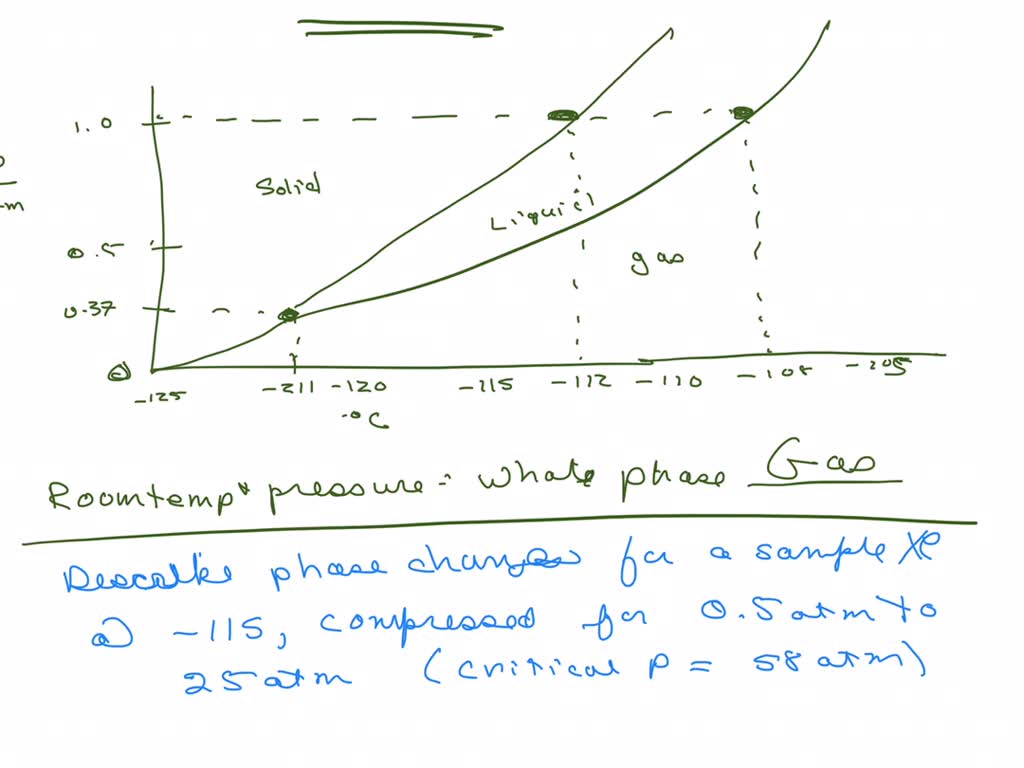 1.0
Solid
Liquid
0.5
gas
0.37
0
-125
-211 -120 -115 -112 -110 -108 -105
°C
Room temp & pressure: what phase Gas
phase changes for a sample Xe
a) -115, compressed for 0.5 atm to
25 atm (critical P = 58 atm)